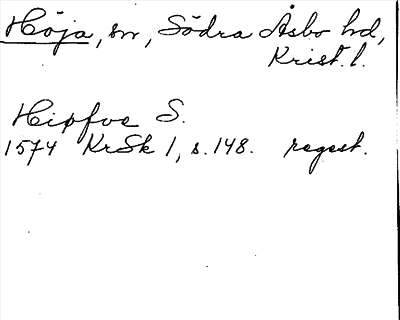 Höja, sn, Södra Åsbo hd,
Krist. l.
Hipfve S.
1574 KrSk 1, s. 148. regest.